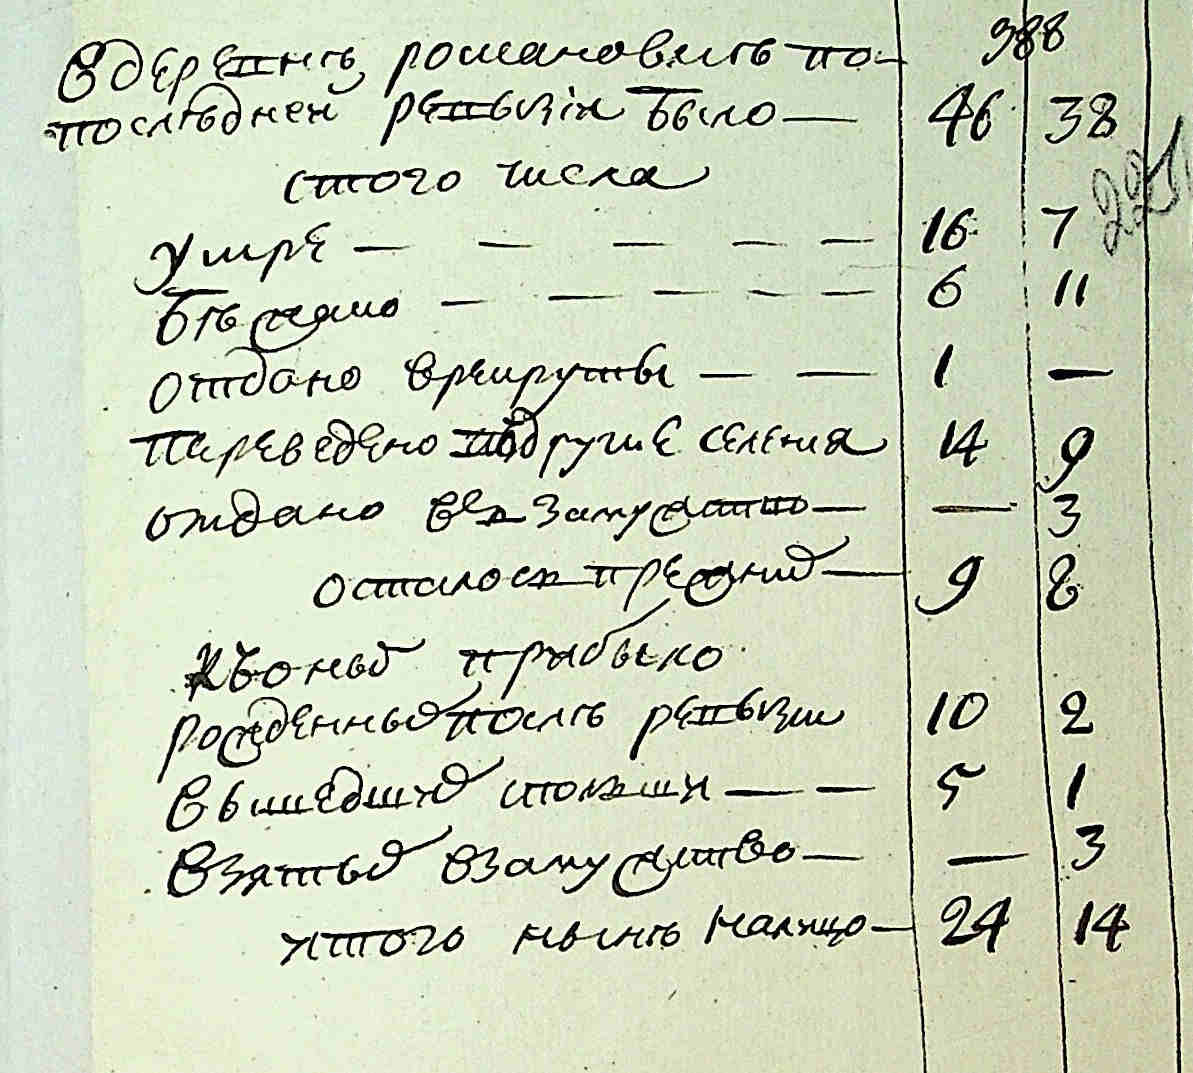 388
Вдеревнѣ романовкѣ по
последней ревизiи было — 46 38
стого числа
225
умре — — — — — 16 7
бѣжало — — — — — 6 11
отдано врекруты — — 1 —
переведено вдругие селения 14 9
отдано взамужство — — 3
осталось прежних — 9 8
къоным прибыло
рожденных послѣ ревизии 10 2
вышедших — — 5 1
взятых взамужство — — 3
итого нынѣ налицо — 24 14